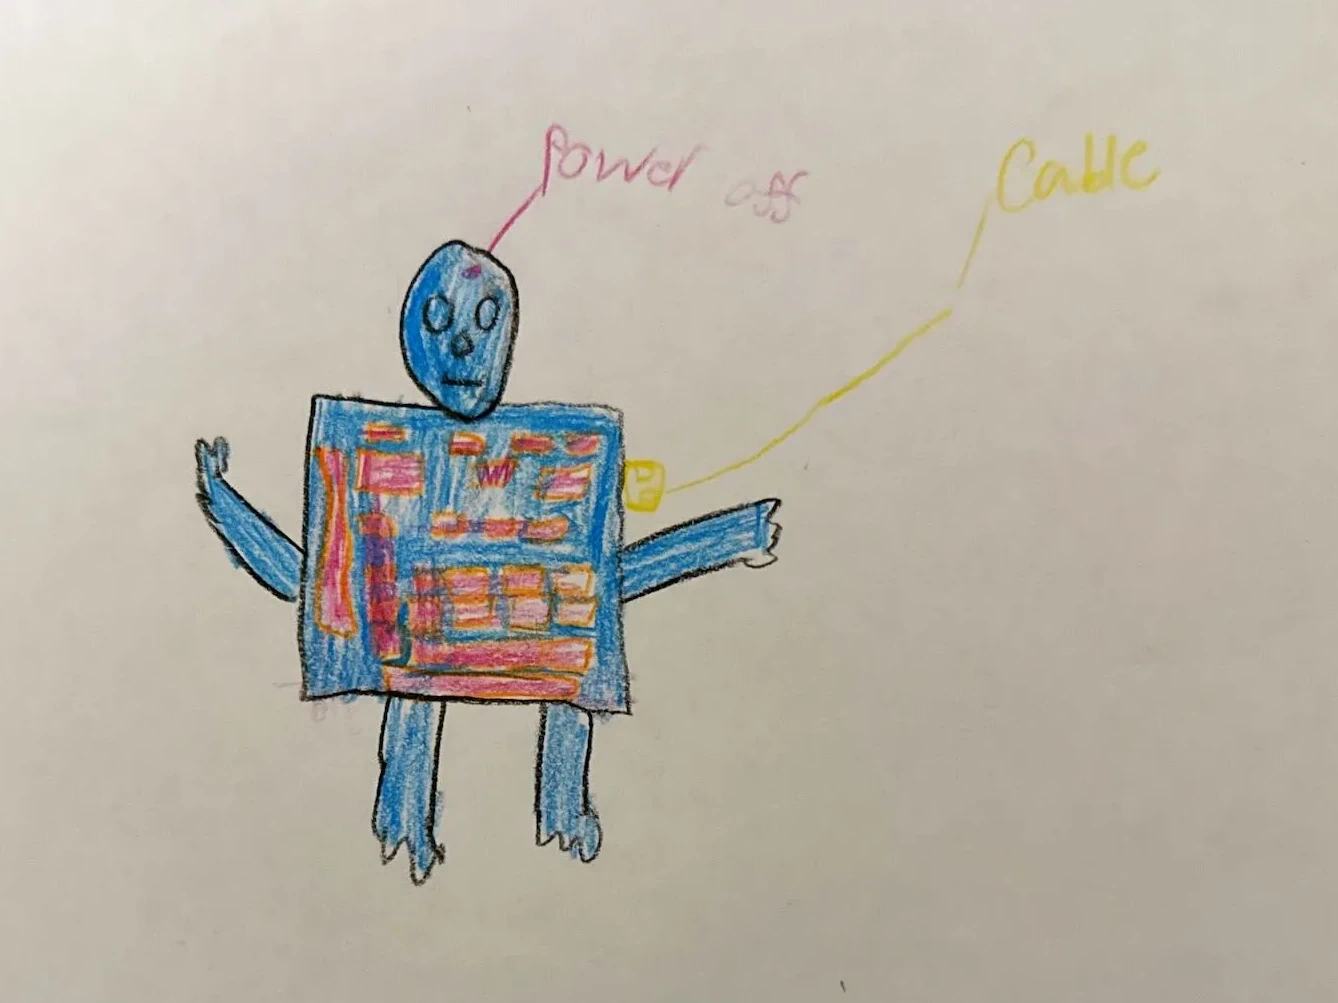 Power off
Cable